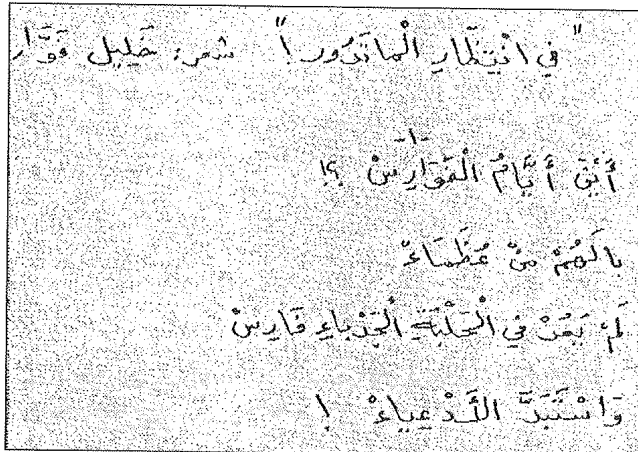 "في انْتِظَارِ الْماتَدُور!" شعر: خَليل فَوَّار
-١-
أَيْنَ أَيَّامُ الْفَوَارِسْ ؟!
يالَهُمْ مِنْ عُظَمَاءْ
لَمْ يَعُدْ في الْحَلْبَةِ الْجَدْباءِ فَارِسْ
وَاسْتَبَدَّ الأَدْعِياءْ !